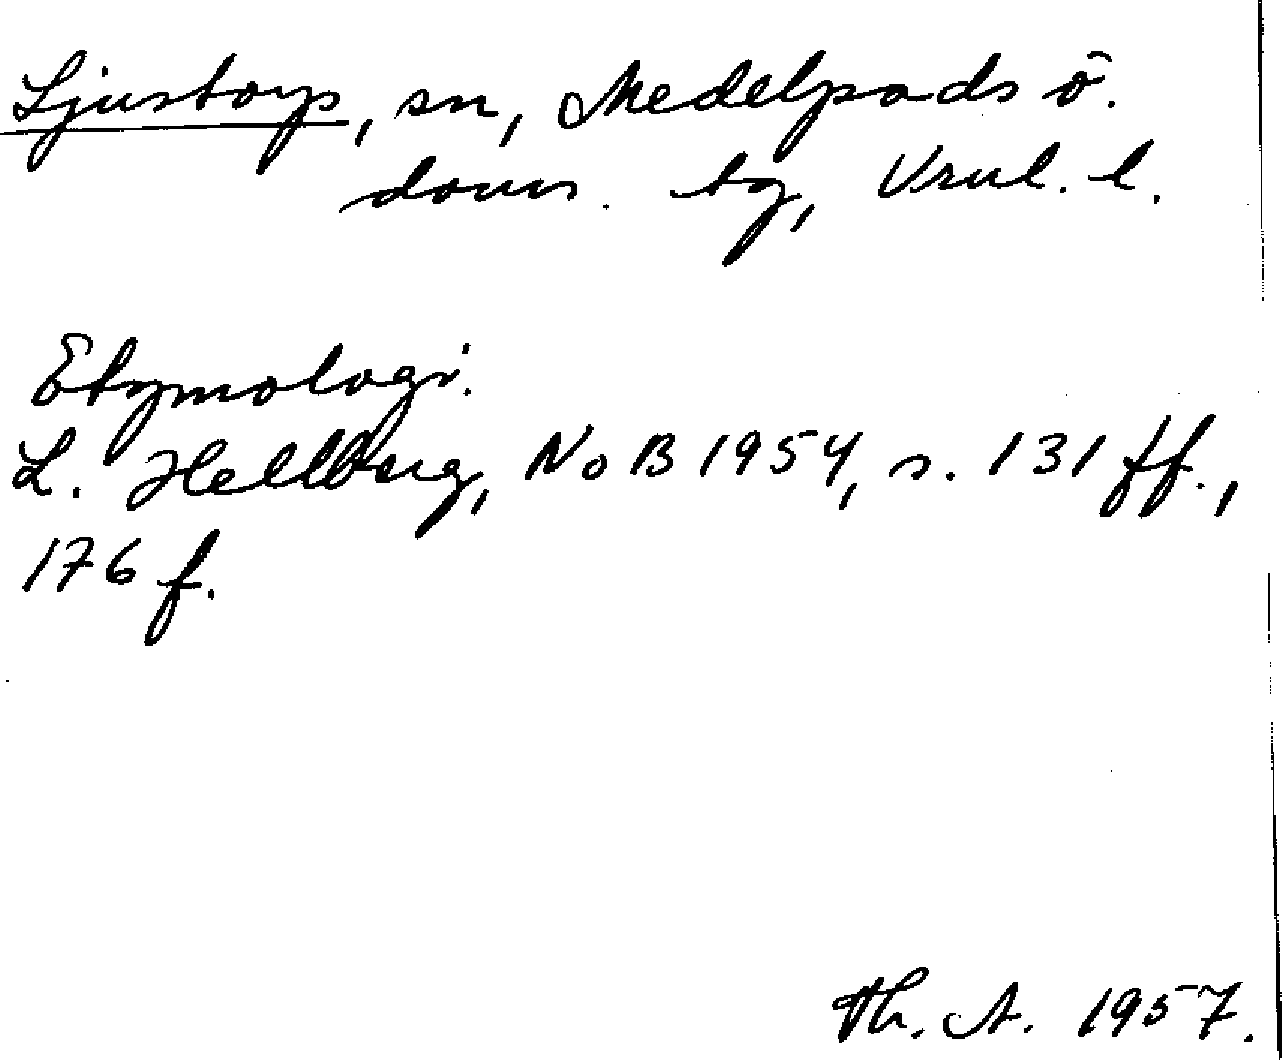 Ljustorp, sn, Medelpads ö.
doms. tg, Vrnl. l.
Etymologi.
L. Hellberg, NoB 1954, s. 131 ff.,
176 f.
Th. A. 1957.